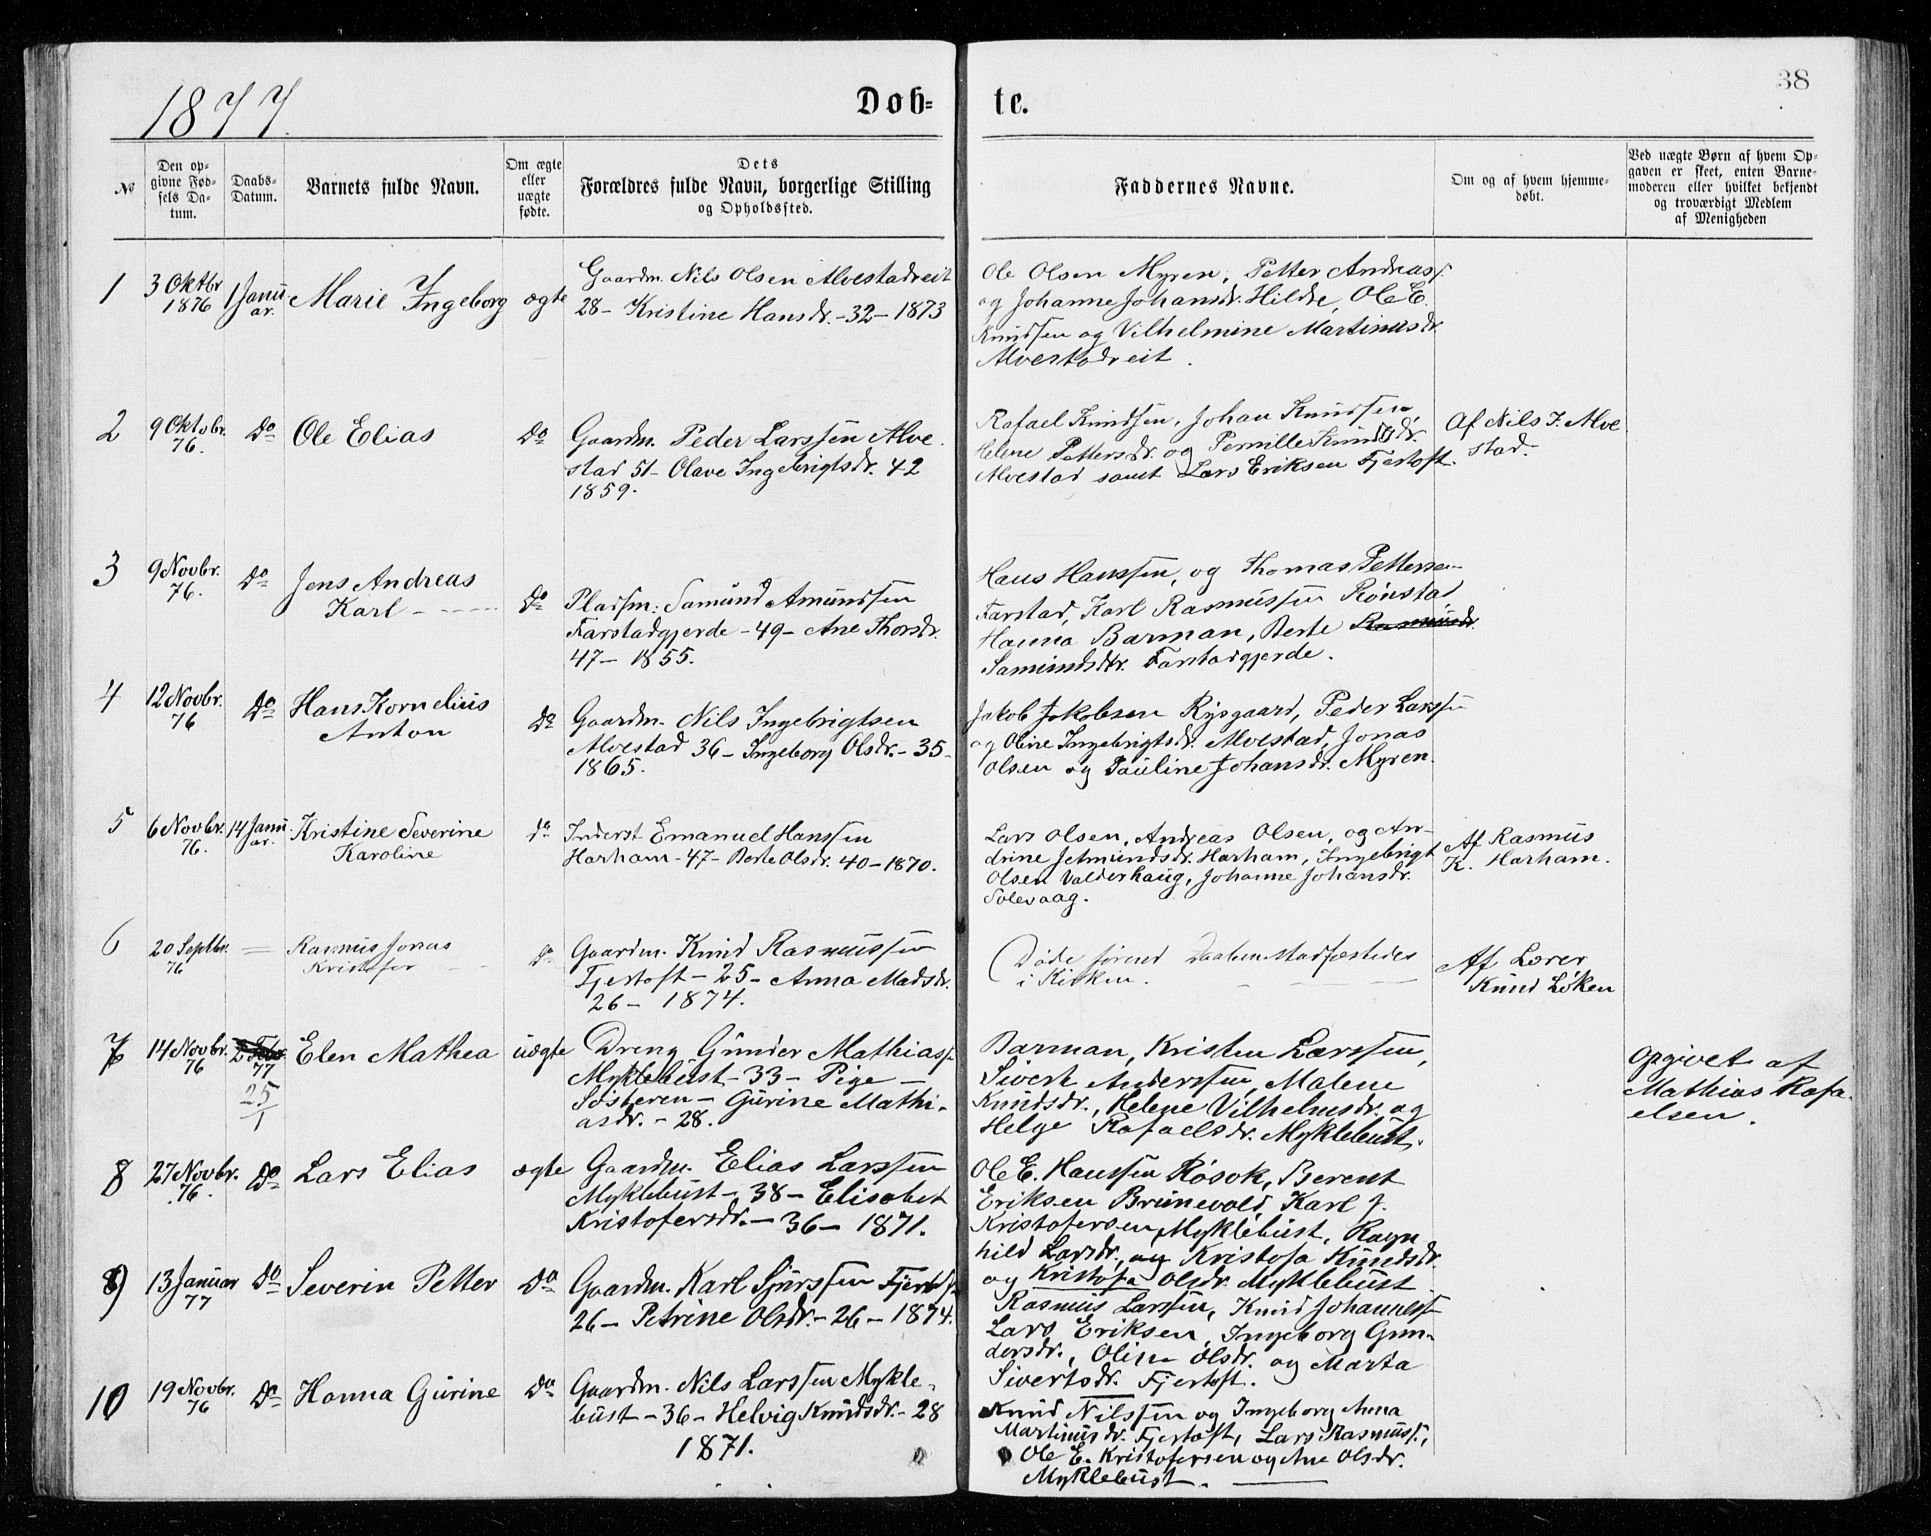 1877.
Döb-
te.
38
№
Den op-
givne Fød-
sels Da-
tum.
Daabs-
Datum.
Barnets fulde Navn.
Om ægte
eller
uægte
fødte.
Dets
Forældres fulde Navn, borgerlige Stilling
og Opholdssted.
Faddernes Navne.
Om og af hvem hjemme-
døbt.
Ved uægte Børn af hvem Op-
gaven er skeet, enten Barne-
moderen eller hvilket bekjendt
og troværdigt Medlem
af Menigheden
1
3 Oktbr
1876
1 Janu
ar.
Marie Ingeborg
ægte
Gaardm. Nils Olsen Alvestadreit
28 - Kristine Hansdr. - 32 - 1873
Ole Olsen Myren, Petter Andreass.
og Johanne Johansdr. Hildre, Ole E.
Knudsen og Vilhelmine Martinusdr.
Alvestadreit.
2
9 Oktobr.
76.
Do
Ole Elias
Do
Gaardm. Peder Larssen Alve
stad 51 - Olave Ingebrigtsdr. 42
1859.
Rafael Knudsen, Johan Knudsen,
Helene Pettersdr. og Pernille Knudsdr.
Alvestad samt Lars Eriksen Fjertoft.
Af Nils I. Alve
stad.
3
9 Novbr.
76.
Do
Jens Andreas
Karl
Do
Pladsm: Samund Amundsen
Farstadgjerde - 49 - Ane Thorsdr.
47 - 1855.
Hans Hanssen, og Thomas Pettersen
Farstad, Karl Rasmussen Rönstad
Hanna Barman, Berte Rasmusdr.
Samundsdtr. Farstadgjerde.
4
12 Novbr.
76
Do
Hans Kornelius
Anton
Do
Gaardm. Nils Ingebrigtsen
Alvestad 36 - Ingeborg Olsdr. - 35 -
1865.
Jakob Jakobsen Rysgaard, Peder Larssen
og Oline Ingebrigtsdr. Alvestad, Jonas
Olsen og Pauline Johansdr. Myren.
5
6 Novbr.
76.
14 Janu
ar.
Kristine Severine
Karoline
do
Inderst Emanuel Hanssen
Harham - 47 - Berte Olsdr. 40 - 1870.
Lars Olsen, Andreas Olsen, og An-
drine Jetmundsdr. Harham, Ingebrigt
Olsen Valderhaug, Johanne Johansdr.
Solevaag.
Af Rasmus
K. Harham.
6
20 Septbr.
76
Rasmus Jonas
Kristofer
do
Gaardm. Knud Rasmussen
Fjertoft - 25 - Anna Madsdr.
26 - 1874.
Döde förend Daaben stadfæstedes
i Kirken.
Af Lærer
Knud Löken
7
14 Novbr.
76
2 Febr
77
25
1
Elen Mathea
uægte
Dreng Gunder Mathiass.
Myklebust - 33 - Pige -
Sösteren - Gurine Mathi-
asdr. - 28.
Barman, Kristen Larssen,
Sivert Anderssen, Malene
Knudsdr., Helene Vilhelmsdr. og
Helge Rafaelsdr. Myklebust.
Opgivet af
Mathias Rafa-
elsen.
8
27 Novbr.
76.
Do
Lars Elias
ægte
Gaardm. Elias Larssen
Myklebust - 38 - Elisabet
Kristofersdr. - 36 - 1871.
Ole E. Hanssen Rösok, Berent
Eriksen Brunevold, Karl J.
Kristofersen Myklebust, Ragn
hild Larsdr. og Kristofa Knudsdr.
og Kristofa Olsdr. Myklebust
9
13 Januar
77
Do
Severin Petter
Do
Gaardm. Karl Sjurssen Fjertoft
26 - Petrine Olsdr. - 26 - 1874.
Rasmus Larssen, Knud Johanness.
Lars Eriksen, Ingeborg Gun-
dersdr., Oline Olsdr. og Marta
Sivertsdr. Fjertoft.
10
19 Novbr.
76
Do
Hanna Gurine
Do
Gaardm. Nils Larssen Mykle-
bust - 36 - Helvig Knudsdr. - 28
1871.
Knud Nilssen og Ingeborg Anna
Martinusdr. Fjertoft, Lars Rasmuss.,
Ole E. Kristofersen og Ane Olsdr.
Myklebust.